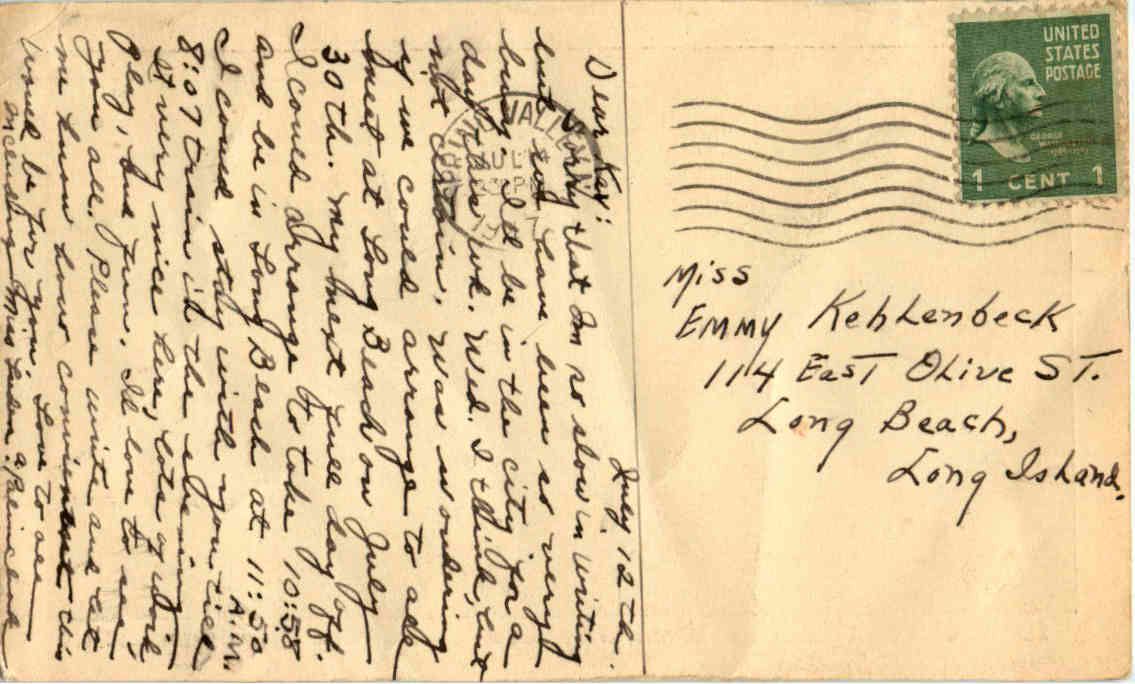 July 12th.
Dear Kay:
Sorry that Im so slow in writing
but have been so very
busy. Ill be in the city for a
day this wk. Wed. I think, but
not certain. Was wondering
if we could arrange to all
meet at Long Beach on July
30th. My next full day off.
I could arrange to take 10:58
and be in Long Beach at 11:50 A.M.
I could stay with you till
8:07 train in the evening
It very nice here, lots of work,
Play, and fun. Ill love to see
you all. Please write and let
me know how convinent this
would be for you. Love to all
including Miss
UNITED
STATES
POSTAGE
1 CENT 1
Miss
Emmy Kehlenbeck
114 East Olive St.
Long Beach,
Long Island.